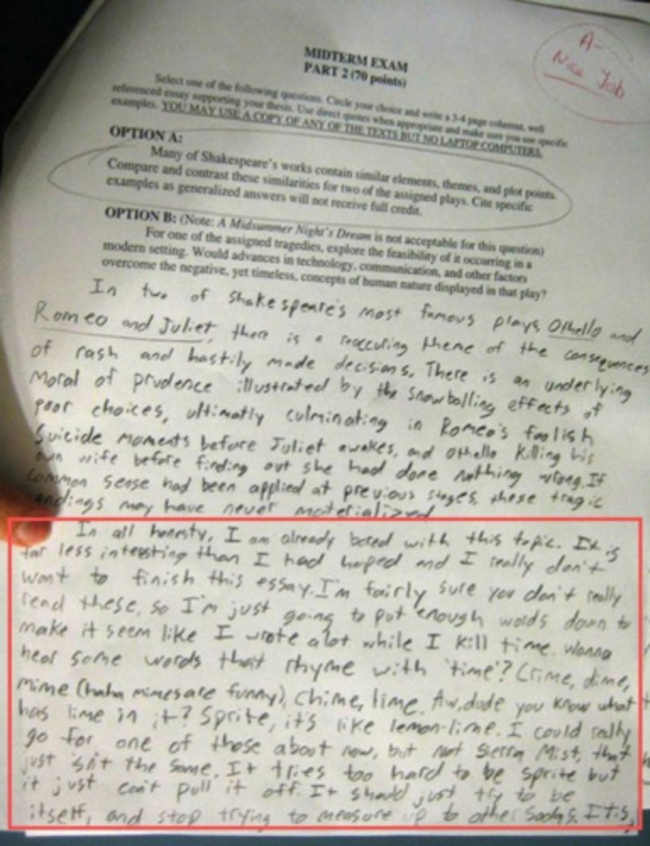 A-
Nice Job
MIDTERM EXAM
PART 2 (70 points)
Select one of the following questions. Circle your choice and write a 3-4 page coherent, well
referenced essay supporting your thesis. Use direct quotes when appropriate and make sure you use specific
examples. YOU MAY USE A COPY OF ANY OF THE TEXTS BUT NO LAPTOP COMPUTERS.
OPTION A:
Many of Shakespeare's works contain similar elements, themes, and plot points.
Compare and contrast these similarities for two of the assigned plays. Cite specific
examples as generalized answers will not receive full credit.
OPTION B: (Note: A Midsummer Night's Dream is not acceptable for this question)
For one of the assigned tragedies, explore the feasibility of it occurring in a
modern setting. Would advances in technology, communication, and other factors
overcome the negative, yet timeless, concepts of human nature displayed in that play?
In two of Shakespeare's most famous plays, Othello and
Romeo and Juliet, there is a reoccuring theme of the consequences
of rash and hastily made decisions. There is an underlying
moral of prudence illustrated by the snowballing effects of
poor choices, ultimatly culminating in Romeo's foolish
suicide moments before Juliet awakes, and Othello killing his
own wife before finding out she had done nothing wrong. If
common sense had been applied at previous stages, these tragic
endings may have never materialized
In all honesty, I am already bored with this topic. It is
far less interesting than I had hoped and I really don't
want to finish this essay. I'm fairly sure you don't really
read these, so I'm just going to put enough words down to
make it seem like I wrote alot while I kill time. Wanna
hear some words that rhyme with 'time'? Crime, dime,
mime (haha mimes are funny), chime, lime. Aw, dude you know what
has lime in it? Sprite, it's like lemon-lime. I could really
go for one of those about now, but not Sierra Mist, that
just isn't the same. It tries too hard to be sprite but
it just can't pull it off. It should just try to be
itself, and stop trying to measure up to other sodas. It is,